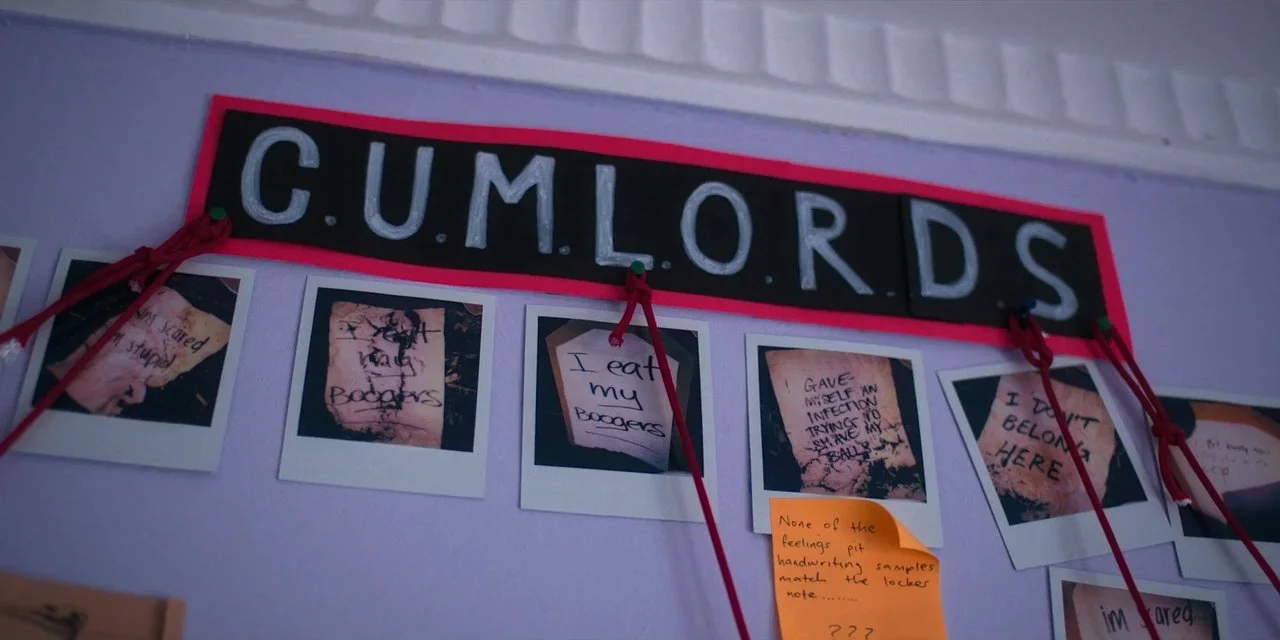 C.U.M.L.O.R.D.S
I'm scared
I'm stupid
I eat
my
Boogers
I eat
my
Boogers
I GAVE
MYSELF AN
INFECTION
TRYING TO
SHAVE MY
BALLS
I DON'T
BELONG
HERE
None of the
feelings pit
handwriting samples
match the locker
note.......
???
im scared